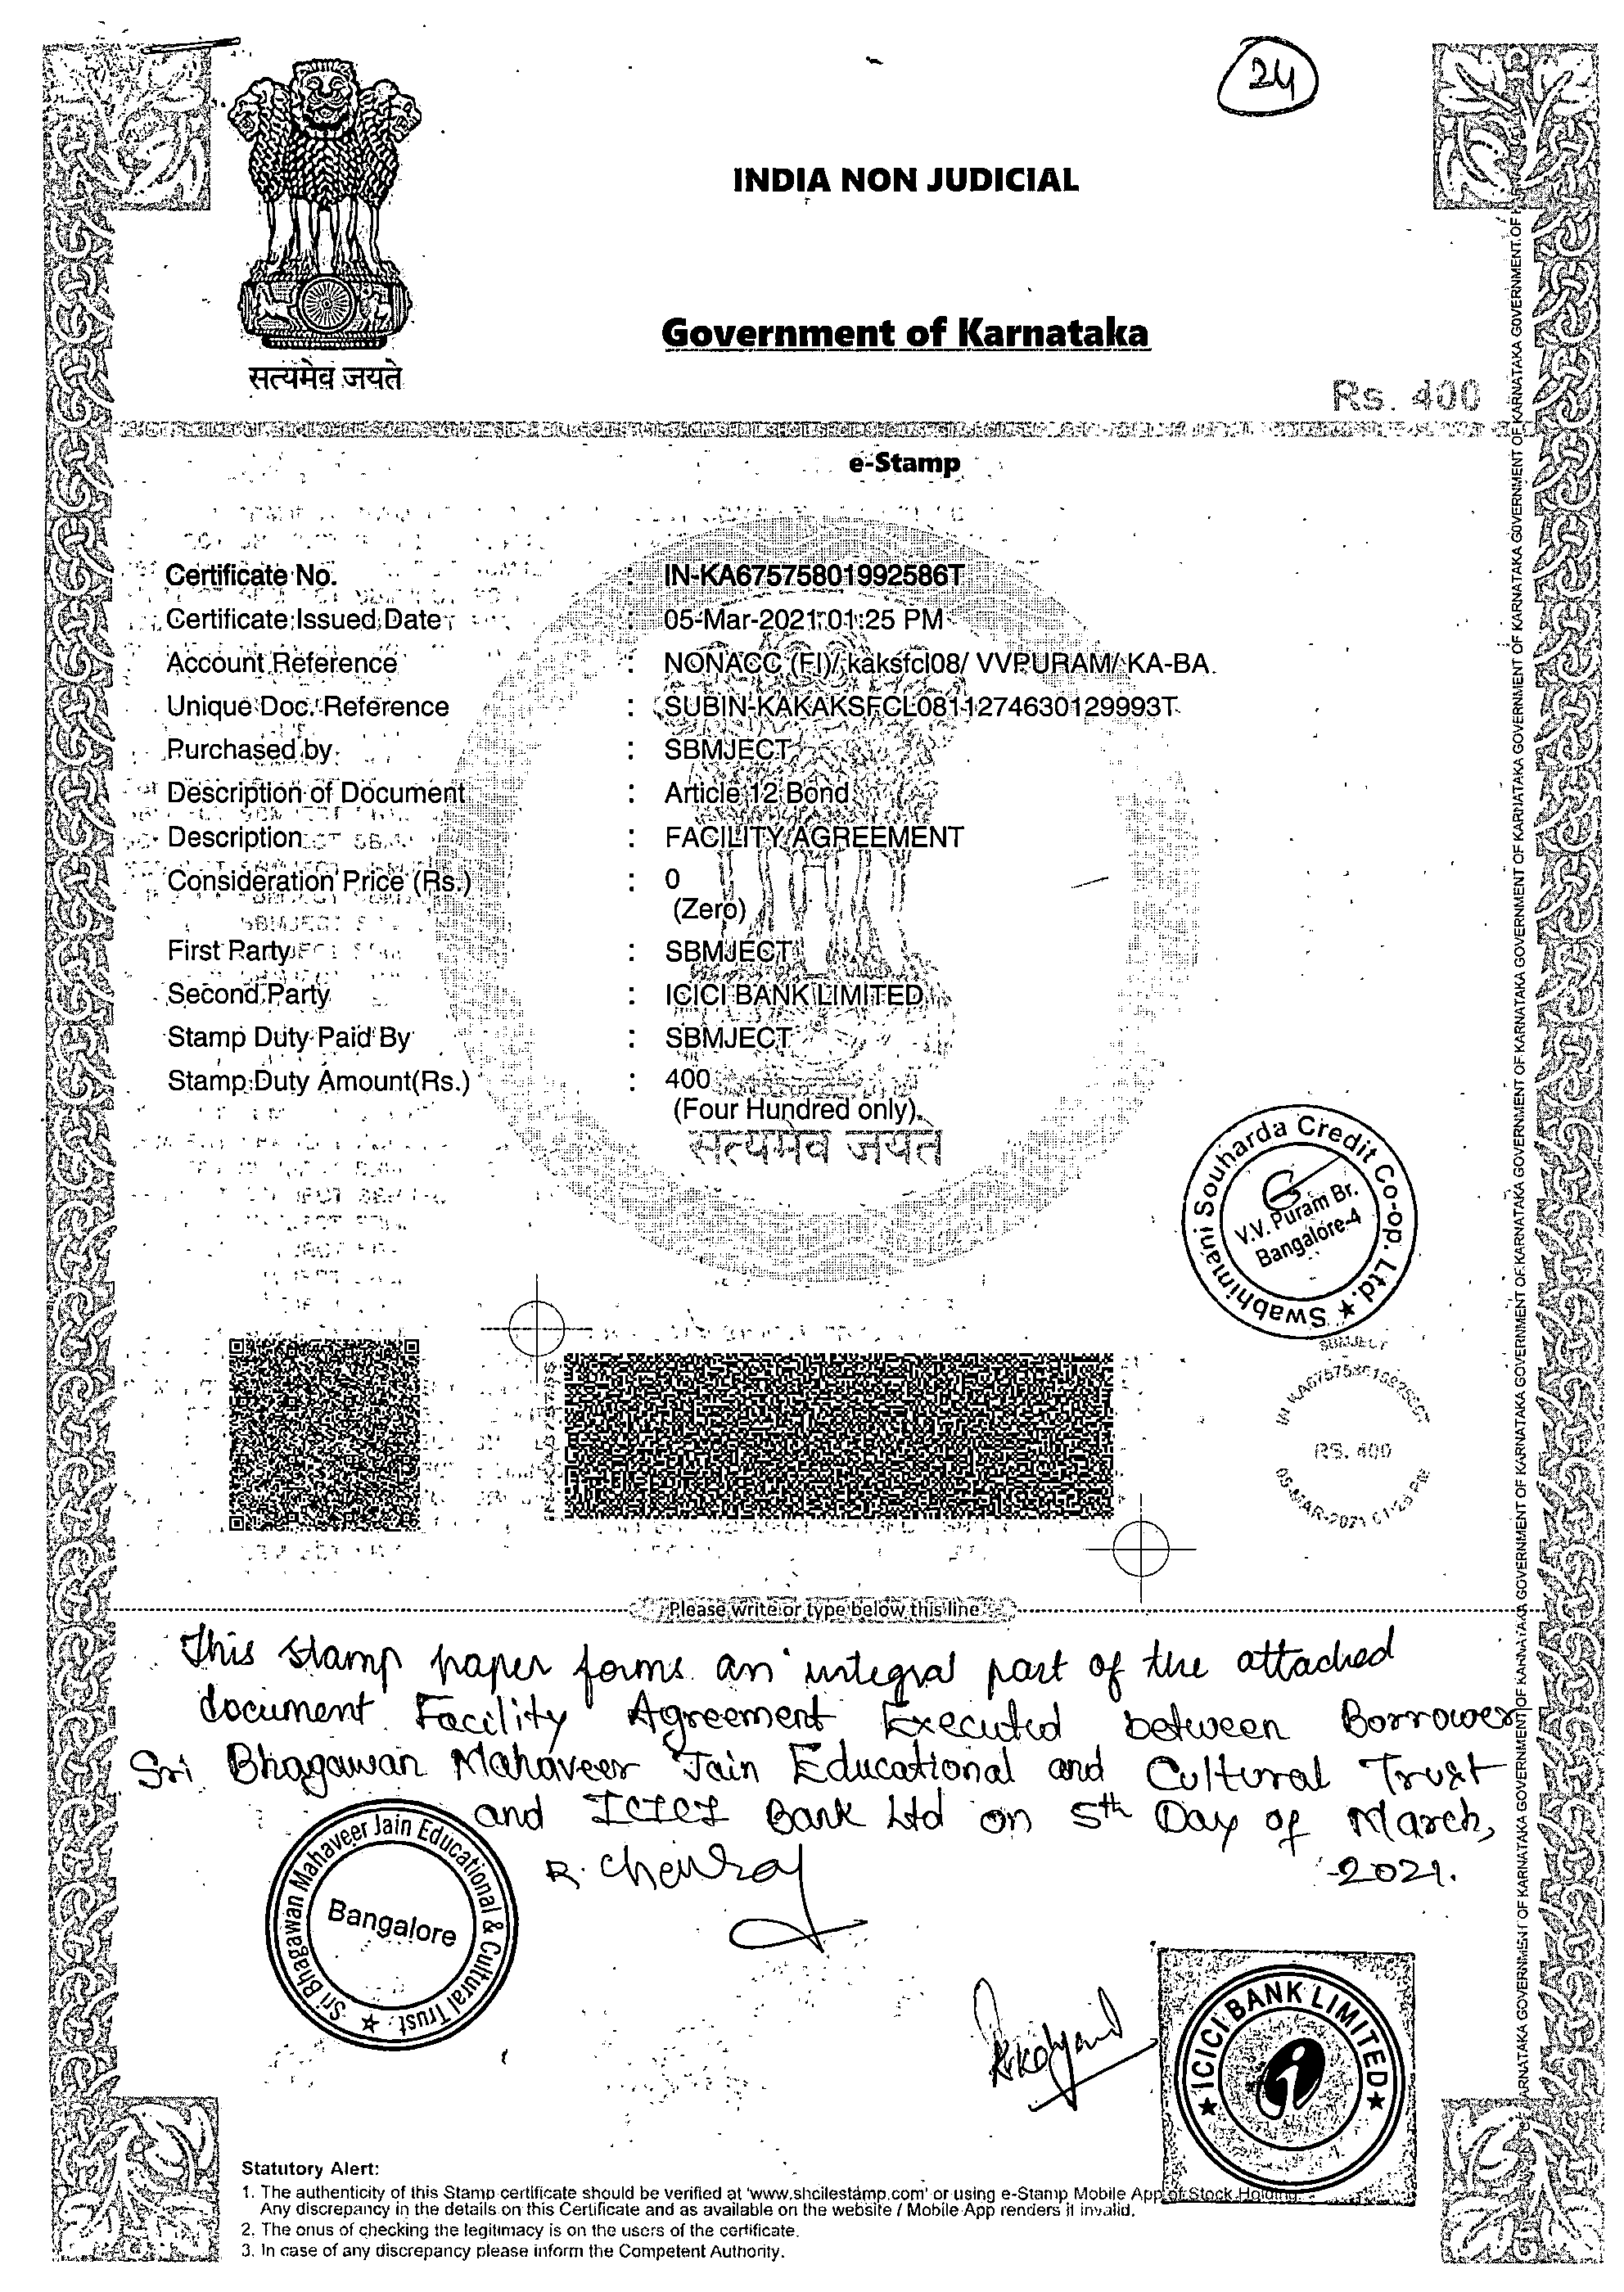 24
INDIA NON JUDICIAL
Government of Karnataka
सत्यमेव जयते
Rs. 400
e-Stamp
Certificate No. : IN-KA67575801992586T
Certificate Issued Date : 05-Mar-2021 01:25 PM
Account Reference : NONACC (FI)/ kaksfcl08/ VVPURAM/ KA-BA
Unique Doc. Reference : SUBIN-KAKAKSFCL0811274630129993T
Purchased by : SBMJECT
Description of Document : Article 12 Bond
Description : FACILITY AGREEMENT
Consideration Price (Rs.) : 0
(Zero)
First Party : SBMJECT
Second Party : ICICI BANK LIMITED
Stamp Duty Paid By : SBMJECT
Stamp Duty Amount(Rs.) : 400
(Four Hundred only)
सत्यमेव जयते
Swabhimani Souharda Credit Co-op. Ltd.
V.V. Puram Br.
Bangalore-4
SBMJECT
RS. 400
Please write or type below this line
This stamp paper forms an integral part of the attached
document Facility Agreement Executed between Borrower
Sri Bhagawan Mahaveer Jain Educational and Cultural Trust
and ICICI Bank Ltd on 5th Day of March,
2021.
R. Chenraj
Sri Bhagawan Mahaveer Jain Educational & Cultural Trust
Bangalore
ICICI BANK LIMITED
Statutory Alert:
1. The authenticity of this Stamp certificate should be verified at 'www.shcilestamp.com' or using e-Stamp Mobile App of Stock Holding.
Any discrepancy in the details on this Certificate and as available on the website / Mobile App renders it invalid.
2. The onus of checking the legitimacy is on the users of the certificate.
3. In case of any discrepancy please inform the Competent Authority.